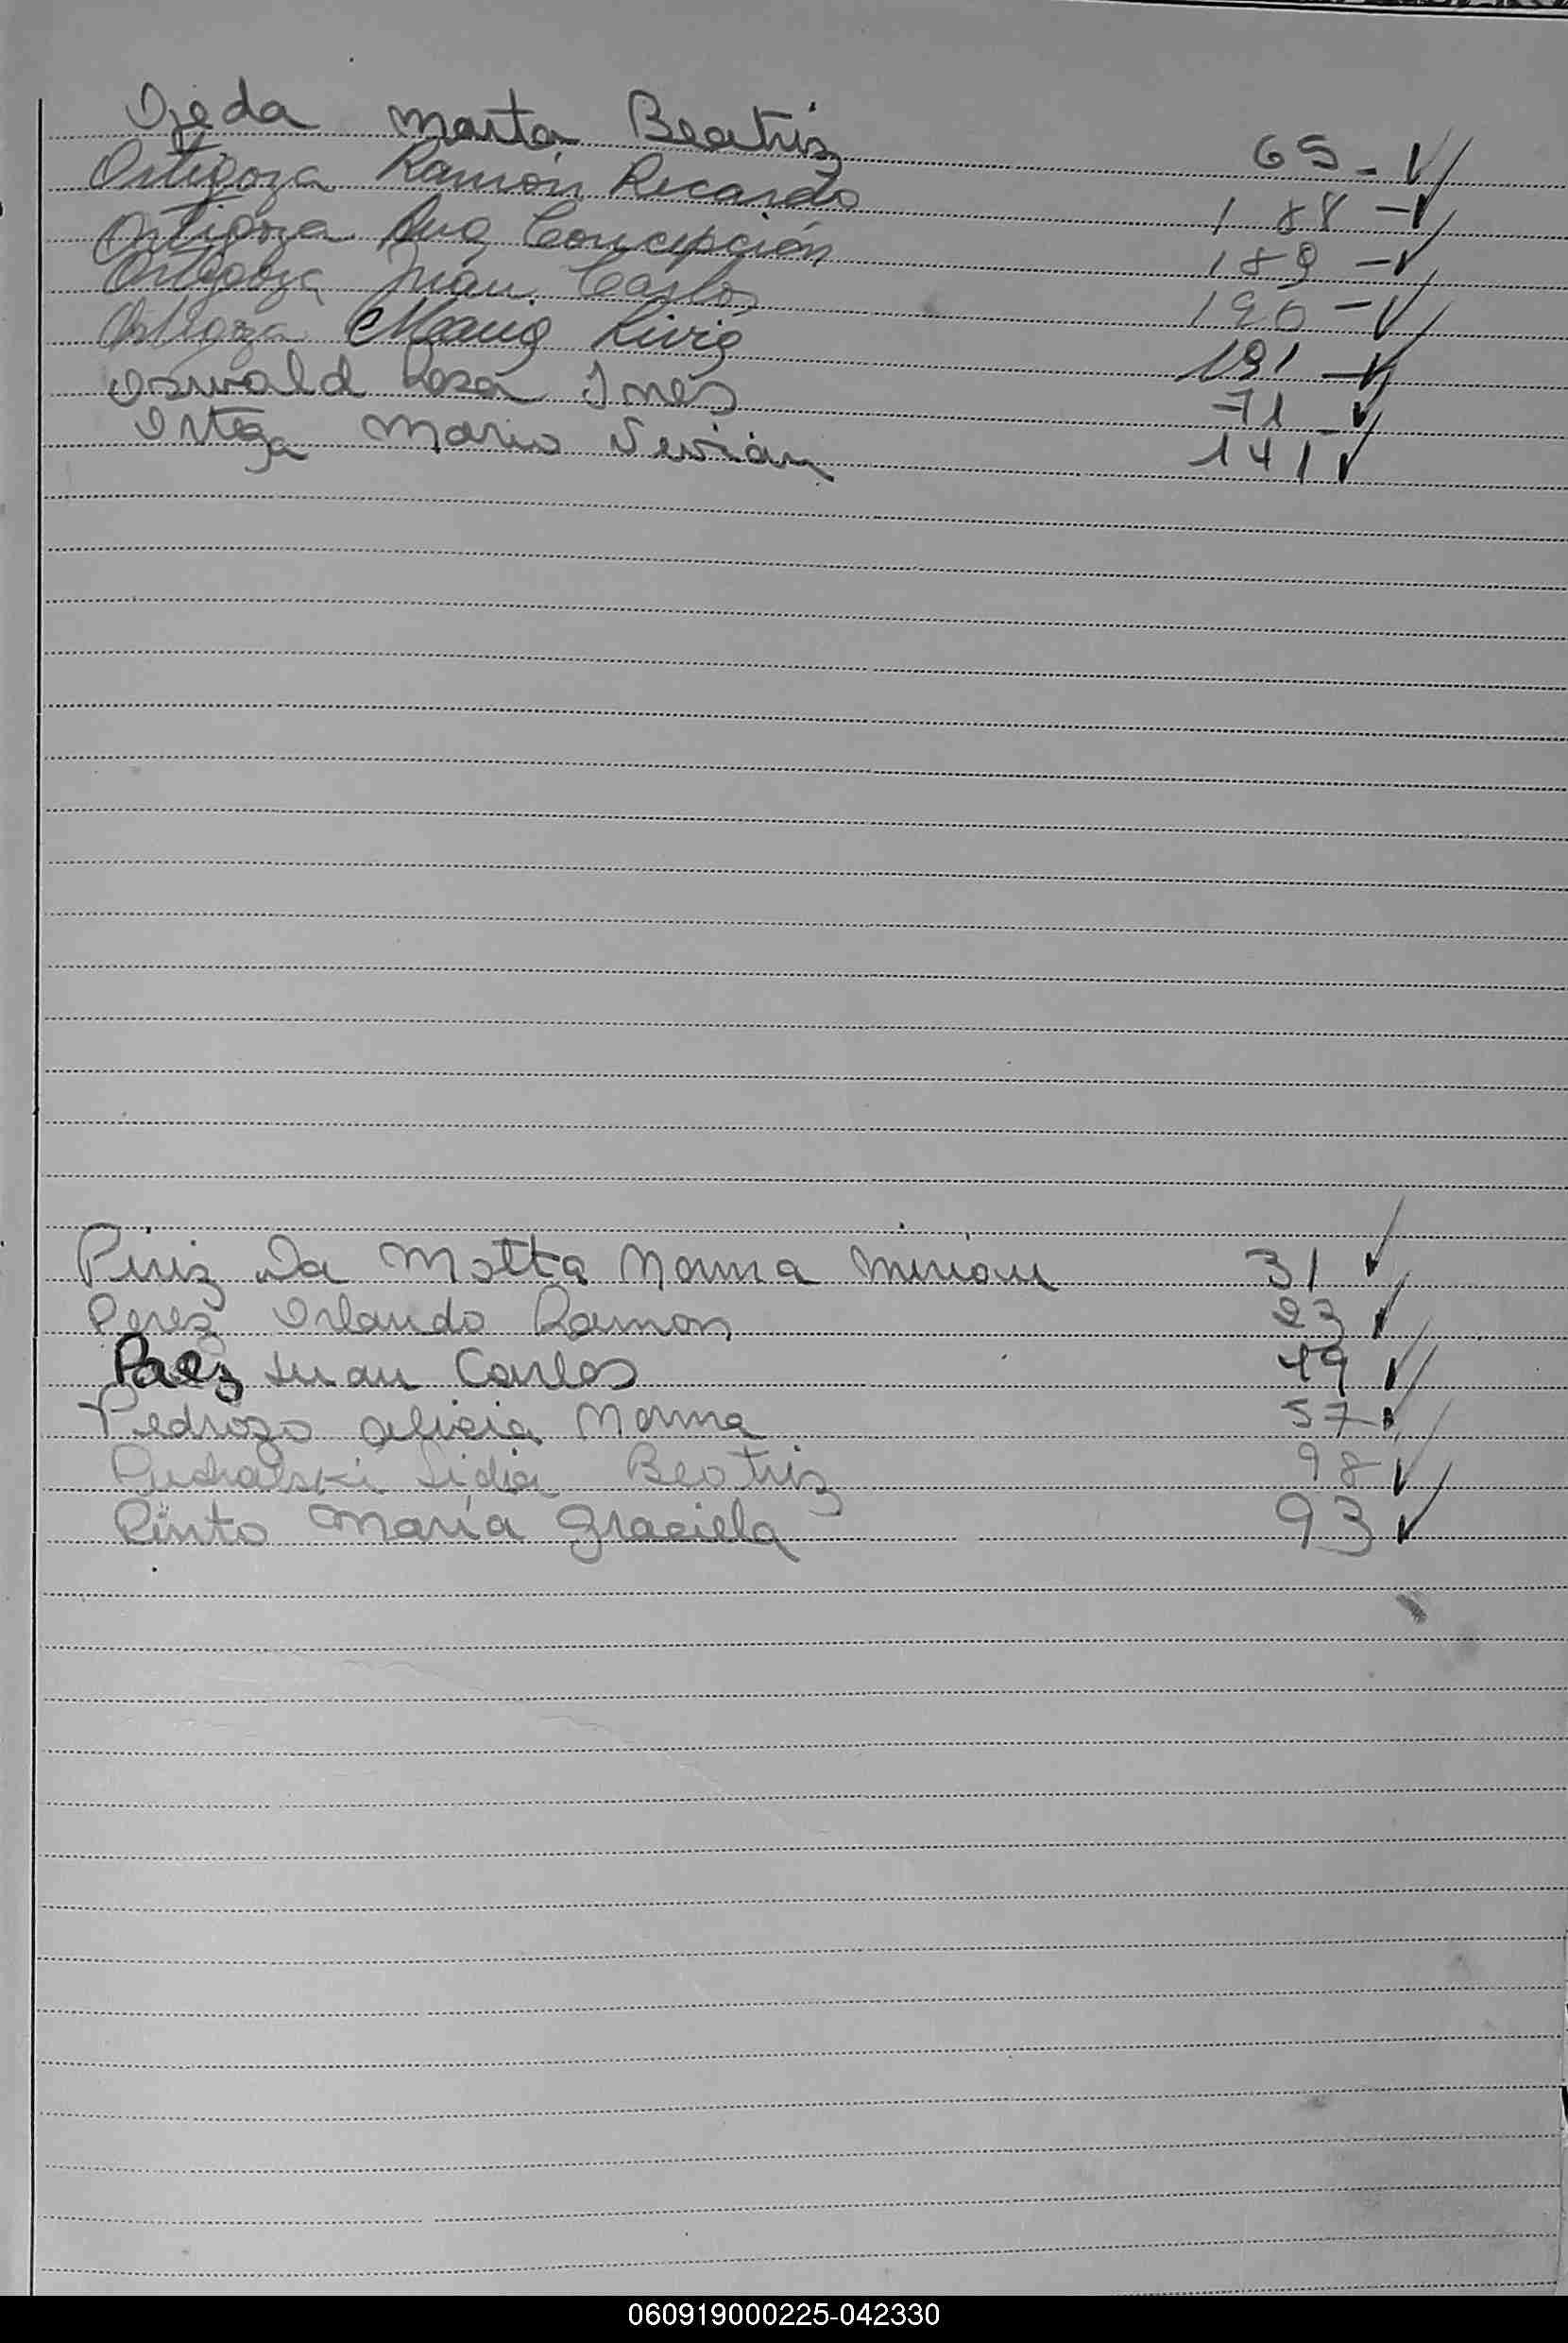 Ojeda Marta Beatriz 65 - ✓
Ortigoza Ramón Ricardo 188 - ✓
Ortigoza Ana Concepción 189 - ✓
Ortigoza Juan Carlos 190 - ✓
Ortigoza Maria Livia 191 - ✓
Oswald Rosa Inés 71 - ✓
Ortega Mario 141 ✓
Piriz Da Motta Norma Miriam 31 ✓
Perez Orlando Ramon 23 ✓
Paez Juan Carlos 49 ✓
Pedrozo Alicia Norma 57 - ✓
Puchalski Lidia Beatriz 98 ✓
Pinto María Graciela 93 ✓
060919000225-042330